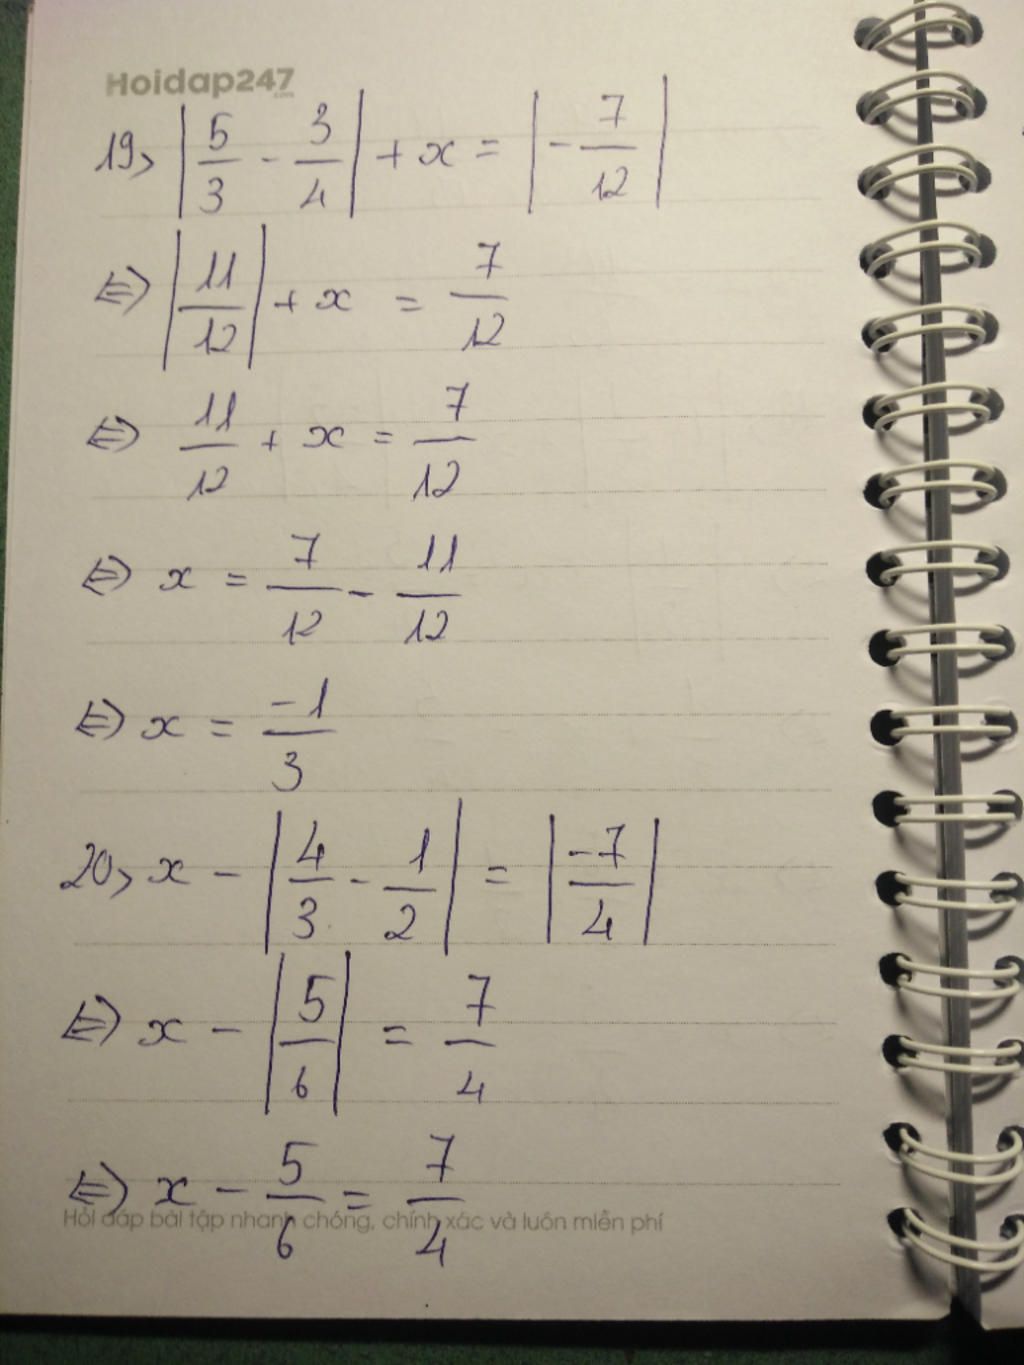 Hoidap247
.com
19> |5/3 - 3/4| + x = |-7/12|
⇔ |11/12| + x = 7/12
⇔ 11/12 + x = 7/12
⇔ x = 7/12 - 11/12
⇔ x = -1/3
20> x - |4/3 - 1/2| = |-7/4|
⇔ x - |5/6| = 7/4
⇔ x - 5/6 = 7/4
Hỏi đáp bài tập nhanh chóng, chính xác và luôn miễn phí